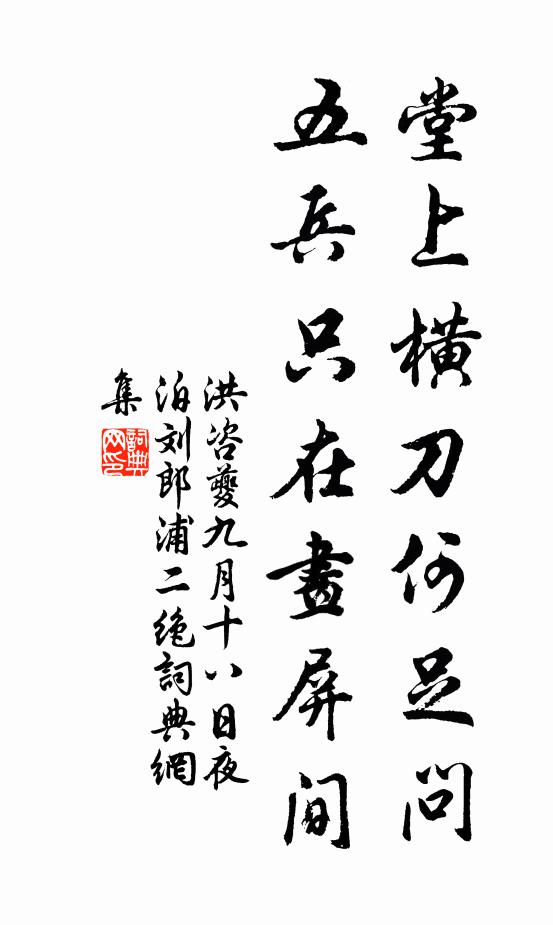 堂上橫刀何足問
五兵只在畫屏間
洪咨夔九月十八日夜
泊刘郎浦二绝詞典網
集
詞典网印